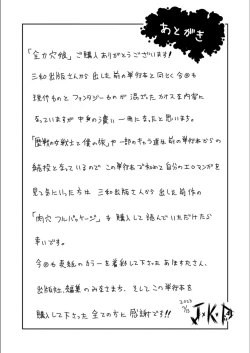 あとがき
「全力穴娘」ご購入ありがとうございます！
三和出版さんから出した前の単行本と同じく今回も
現代ものとファンタジーものが混ざったカオスな内容に
なっていますが中身の濃い一冊になったと思います。
「歴戦の女戦士と僕の旅」や一部のキャラ達は前の単行本からの
続投となっているのでこの単行本で初めて自分のエロマンガを
見て気にいった方は三和出版さんから出した前作の
「肉穴フルパッケージ」も購入して読んでいただけたら
幸いです。
今回も表紙のカラーを着彩して下さったあほすたさん、
出版社、編集のみなさまち、そしてこの単行本を
購入して下さった全ての方に感謝です!!
2023
J.K.P